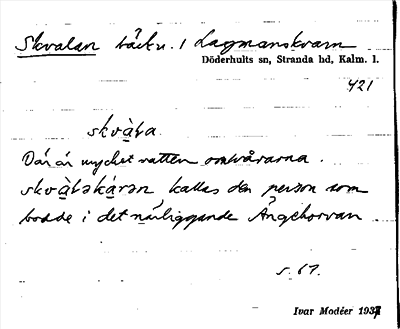 Skvalan bäck v. / Lagmanskvarn
Döderhults sn, Stranda hd, Kalm. l.
421
skvàla
Där är mycket vatten om vårarna.
skvàləkarən kallas den person som
bodde i det närliggande Ängehorvan
s. 67.
Ivar Modéer 1937